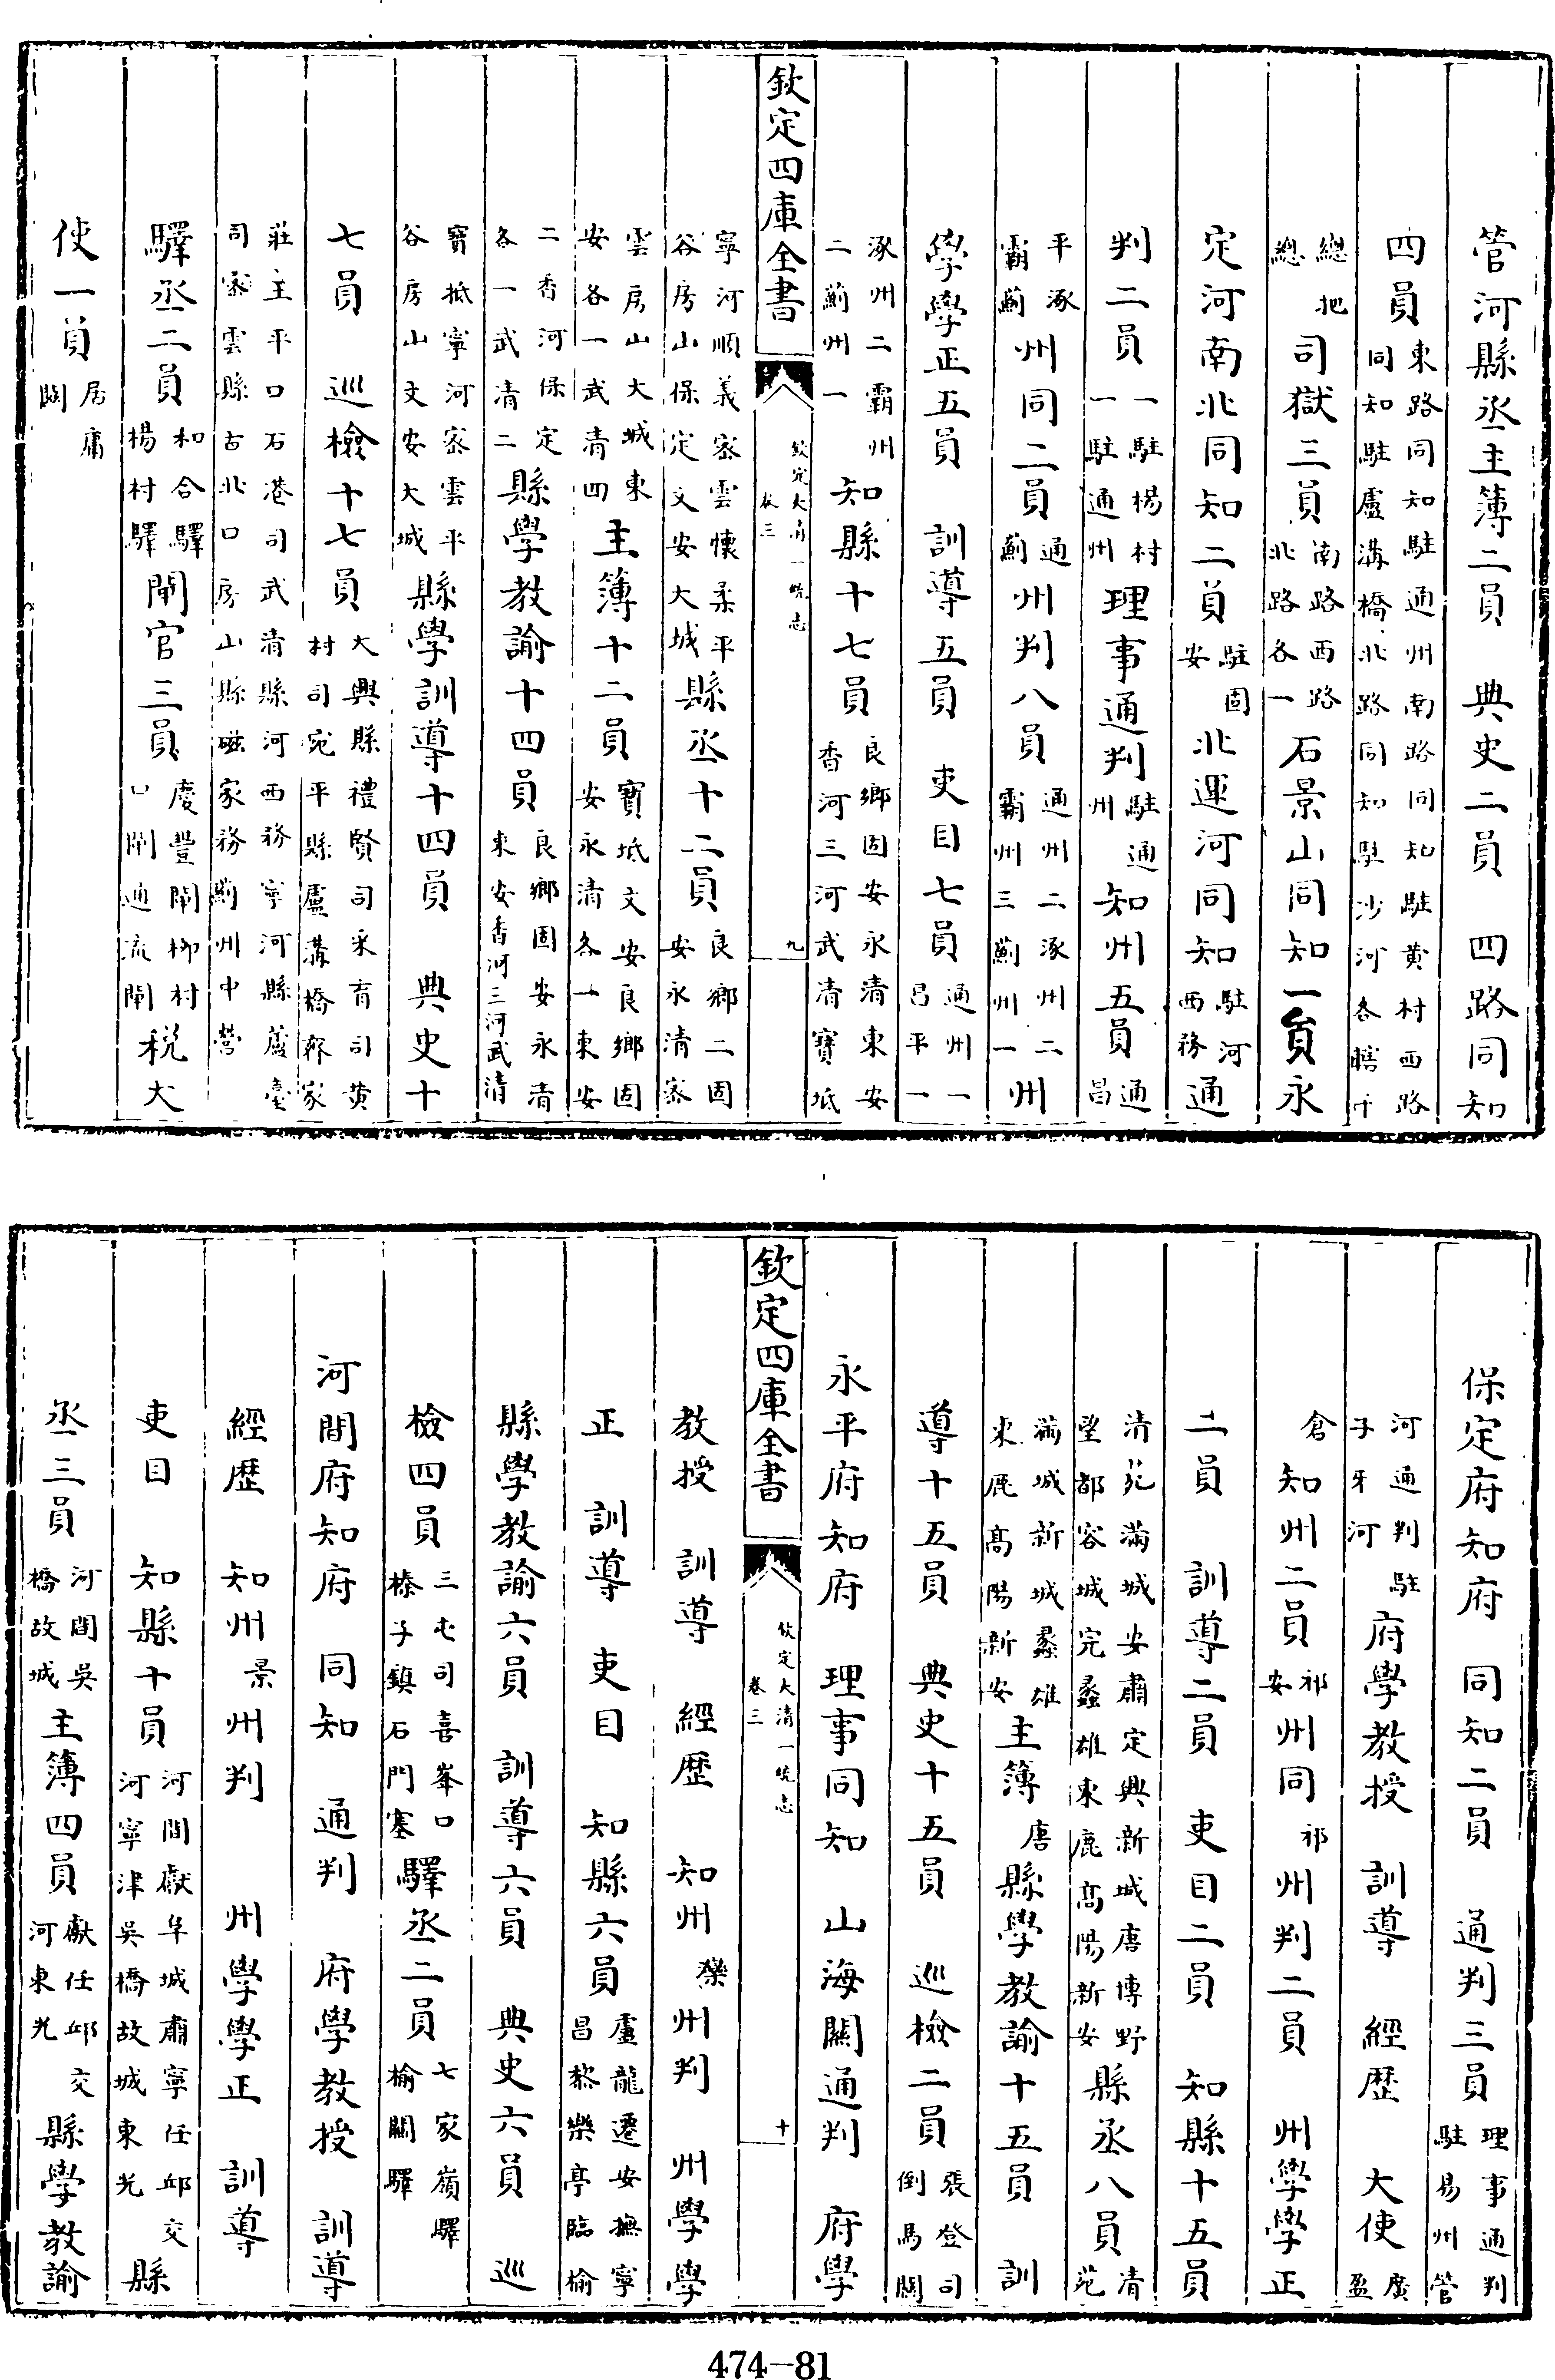 管河縣丞主簿二員 典史二員 四路同知
四員東路同知駐通州南路同知駐黄村西路同知駐盧溝橋北路同知駐沙河各轄千
總把總司獄三員南路西路北路各一石景山同知一員永
定河南北同知二員駐固安北運河同知駐河西務通
判二員一駐楊村一駐通州理事通判駐通州知州五員通昌
平涿霸薊州同二員通薊州判八員通州二涿州二霸州三薊州一州
學學正五員 訓導五員 吏目七員通州一昌平一
涿州二霸州二薊州一知縣十七員良鄉固安永清東安香河三河武清寶坻
欽定四庫全書 欽定大清一統志 卷三 九
寧河順義宻雲懷柔平谷房山保定文安大城縣丞十二員良鄉二固安永清宻
雲房山大城東安各一武清四主簿十二員寶坻文安良鄉固安永清各一東安
二香河保定各一武清二縣學教諭十四員良鄉固安永清東安香河三河武清
寶抵寧河宻雲平谷房山文安大城縣學訓導十四員 典史十
七員 巡檢十七員大興縣禮賢司采育司黄村司宛平縣盧溝橋齊家
莊王平口石港司武清縣河西務寧河縣蘆臺司宻雲縣古北口房山縣磁家務薊州中營
驛丞二員和合驛楊村驛閘官三員慶豐閘柳村口閘通流閘税大
使一員居庸關
保定府知府 同知二員 通判三員理事通判駐易州管
河通判駐子牙河府學教授 訓導 經歷 大使廣盈
倉知州二員祁安州同祁州判二員 州學學正
二員 訓導二員 吏目二員 知縣十五員
清苑滿城安肅定興新城唐博野望都容城完蠡雄束鹿高陽新安縣丞八員清苑
滿城新城蠡雄束鹿高陽新安主簿唐縣學教諭十五員 訓
導十五員 典史十五員 巡檢二員張登司倒馬關
永平府知府 理事同知 山海關通判 府學
欽定四庫全書 欽定大清一統志 卷三 十
教授 訓導 經歷 知州灤州判 州學學
正 訓導 吏目 知縣六員盧龍遷安撫寧昌黎樂亭臨榆
縣學教諭六員 訓導六員 典史六員 巡
檢四員三屯司喜峯口榛子鎮石門寨驛丞二員七家嶺驛榆關驛
河間府知府 同知 通判 府學教授 訓導
經歷 知州景州判 州學學正 訓導
吏目 知縣十員河間獻阜城肅寧任邱交河寧津吳橋故城東光縣
丞三員河間吳橋故城主簿四員獻任邱交河東光縣學教諭
474-81